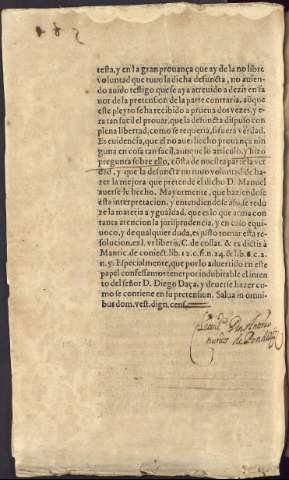 testa, y en la gran prouança que ay de la no libre
voluntad que tuuo la dicha defuncta, no auien-
do auido testigo que se aya atreuido a dezir en fa
uor de la pretension de la parte contraria, aũque
este pleyto se ha recibido a prueua dos vezes, y e-
ra tan facil el prouar, que la defuncta dispuso con
plena libertad, como se requeria, si fuera verdad.
Es euidencia, que el no auer hecho prouança nin
guna en cosa tan facil, aunque lo articulò, y hizo
pregunta sobre ello, cõsta de nuestra parte la ver
dad, y que la defuncta no tuuo voluntad de ha-
zer la mejora que pretende el dicho D. Manuel
auersele hecho. Mayormente, que haziendose
esta interpretacion, y entendiendose assi, se redu
ze la materia a ygualdad, que es lo que ama con
tanta atencion la jurisprudencia, y en caso equi-
uoco, y de qualquier duda, es justo tomar esta re-
solucion, ex l. vt liberis, C. de collat. & ex dictis à
Mantic. de coniect. lib. 12. c. fin. n. 4. & lib. 6. c. 2.
n. 7. Especialmente, que por lo aduertido en este
papel confessamos tener por indubitable el inten
to del señor D. Diego Daça, y deuerse hazer co-
mo se contiene en su pretension. Salua in omni-
bus dom. vest. dign. cens.
Don Antonio
de